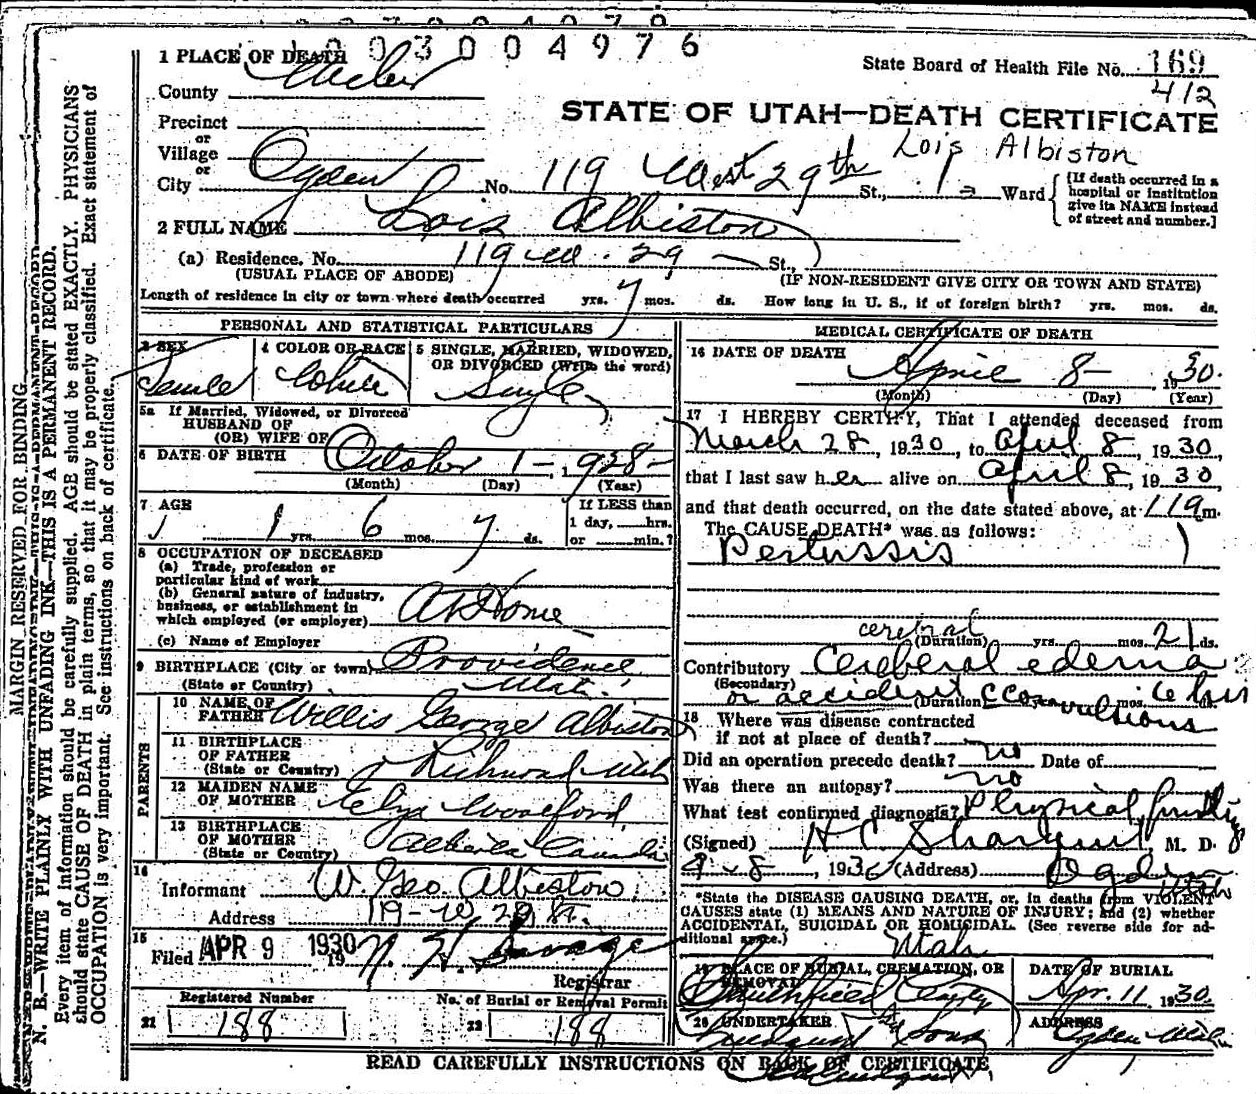 003004976
1 PLACE OF DEATH
State Board of Health File No. 169
412
County Weber
STATE OF UTAH—DEATH CERTIFICATE
Precinct
or
Village
Lois Albiston
or
City Ogden No. 119 West 29th St., Ward
[If death occurred in a hospital or institution give its NAME instead of street and number.]
2 FULL NAME Lois Albiston
(a) Residence. No. 119 W. 29 St.,
(USUAL PLACE OF ABODE) (IF NON-RESIDENT GIVE CITY OR TOWN AND STATE)
Length of residence in city or town where death occurred yrs. 7 mos. ds. How long in U. S., if of foreign birth? yrs. mos. ds.
PERSONAL AND STATISTICAL PARTICULARS
3 SEX
Female
4 COLOR OR RACE
White
5 SINGLE, MARRIED, WIDOWED,
OR DIVORCED (Write the word)
Single
5a If Married, Widowed, or Divorced
HUSBAND OF
(OR) WIFE OF
6 DATE OF BIRTH October 1-, 1928-
(Month) (Day) (Year)
7 AGE
1 yrs. 6 mos. 7 ds.
If LESS than
1 day, hrs.
or min.?
8 OCCUPATION OF DECEASED
(a) Trade, profession or
particular kind of work
(b) General nature of industry,
business, or establishment in
which employed (or employer) At Home
(c) Name of Employer
9 BIRTHPLACE (City or town) Providence
(State or Country) Utah.
PARENTS
10 NAME OF
FATHER Willis George Albiston
11 BIRTHPLACE
OF FATHER
(State or Country) Richmond Utah
12 MAIDEN NAME
OF MOTHER Woolford
13 BIRTHPLACE
OF MOTHER
(State or Country) Alberta Canada
14
Informant W. Geo. Albiston
Address 119-W. 29 St.
15
Filed APR 9 1930 19 N. H. Savage
Registrar
Registered Number
21 188
No. of Burial or Removal Permit
22 188
MEDICAL CERTIFICATE OF DEATH
16 DATE OF DEATH
April 8- 1930.
(Month) (Day) (Year)
17 I HEREBY CERTIFY, That I attended deceased from
March 28, 1930, to April 8, 1930,
that I last saw her alive on April 8, 1930,
and that death occurred, on the date stated above, at m.
The CAUSE DEATH* was as follows:
Pertussis
cerebral
(Duration) yrs. mos. 21 ds.
Contributory Cerberal edema
(Secondary)
or accident (Duration) convulsions
18 Where was disease contracted
if not at place of death?
Did an operation precede death? no Date of
Was there an autopsy? no
What test confirmed diagnosis? Physical findings
(Signed) H C M. D.
4-8, 1930 (Address) Ogden
Utah
*State the DISEASE CAUSING DEATH, or, in deaths from VIOLENT
CAUSES state (1) MEANS AND NATURE OF INJURY; and (2) whether
ACCIDENTAL, SUICIDAL OR HOMICIDAL. (See reverse side for ad-
ditional space.)
Utah
19 PLACE OF BURIAL, CREMATION, OR
REMOVAL
Smithfield
DATE OF BURIAL
Apr. 11 1930.
20 UNDERTAKER
Lindquist & Sons
ADDRESS
Ogden, Utah
READ CAREFULLY INSTRUCTIONS ON BACK OF CERTIFICATE
MARGIN RESERVED FOR BINDING
N. B.—WRITE PLAINLY WITH UNFADING INK—THIS IS A PERMANENT RECORD.
Every item of information should be carefully supplied. AGE should be stated EXACTLY. PHYSICIANS
should state CAUSE OF DEATH in plain terms, so that it may be properly classified. Exact statement of
OCCUPATION is very important. See instructions on back of certificate.